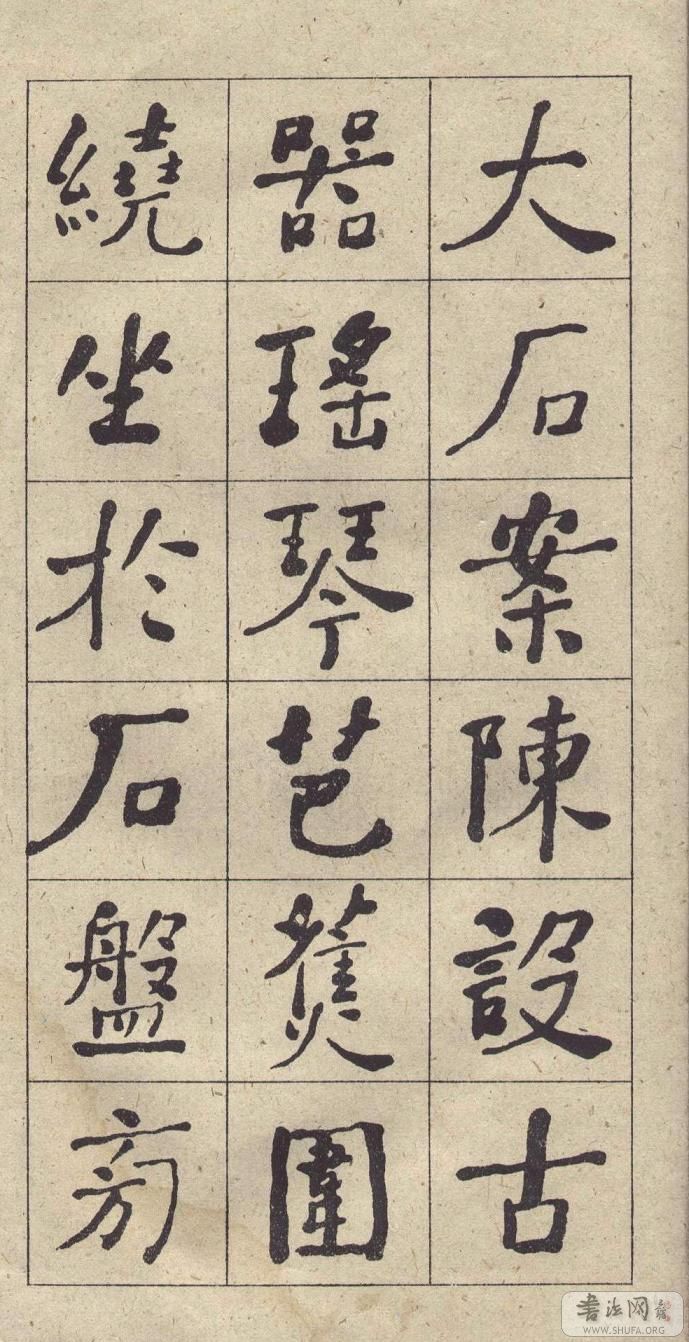 大石案陳設古
器瑤琴芭蕉圍
繞坐於石盤旁
書法网
WWW.SHUFA.ORG